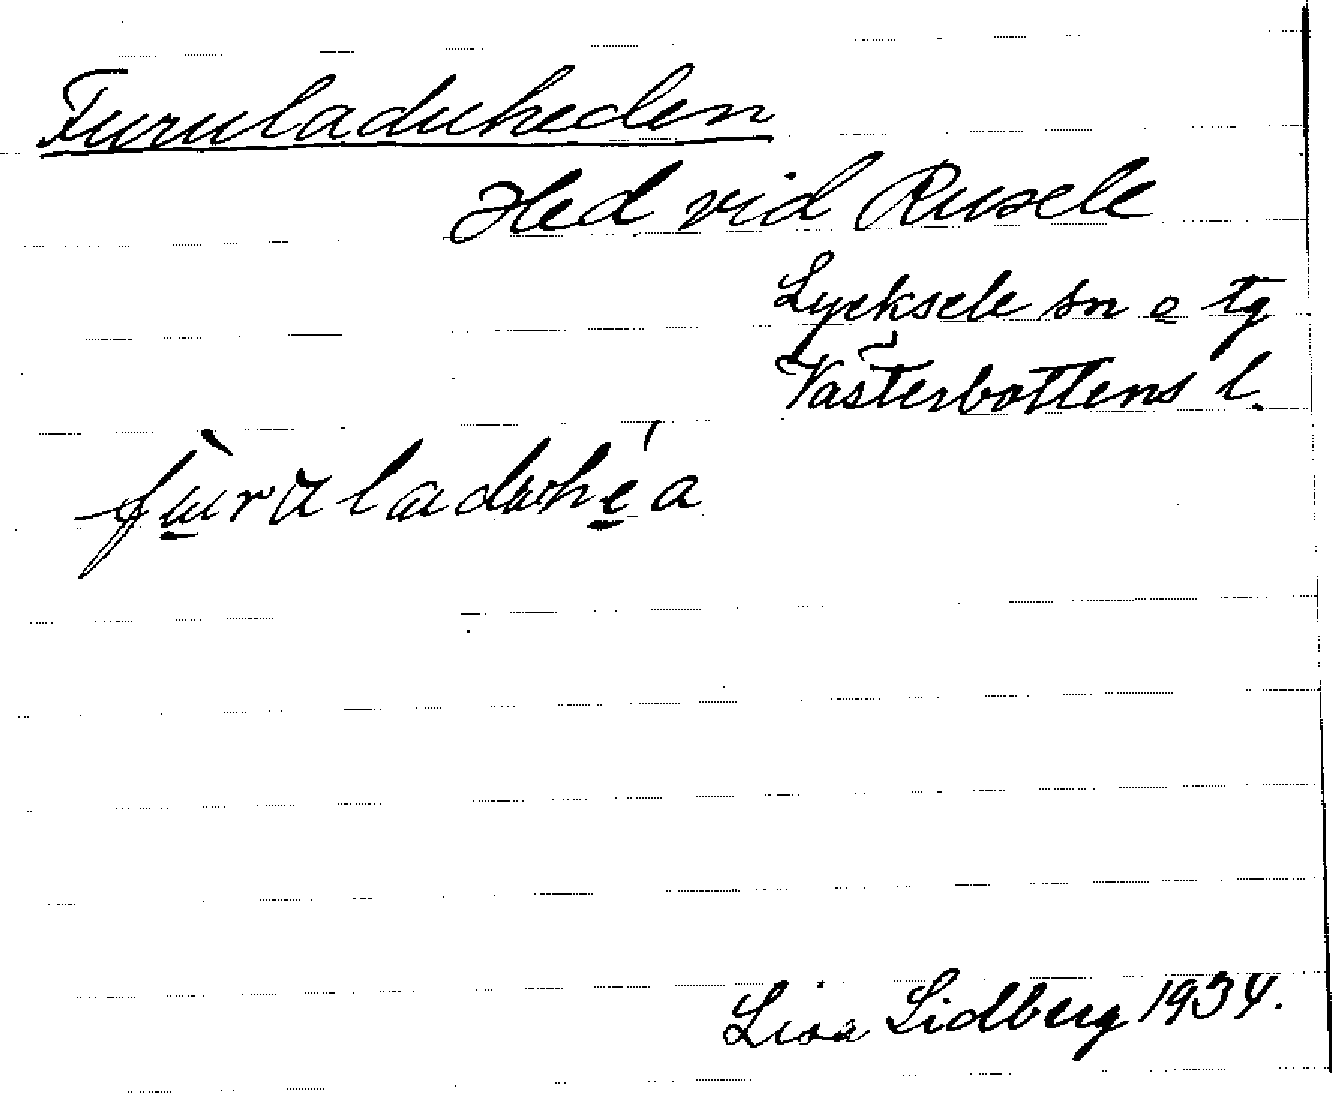 Furuladuheden
Hed vid Rusele
Lycksele sn o tg
Västerbottens l.
Lisa Lidberg 1934.